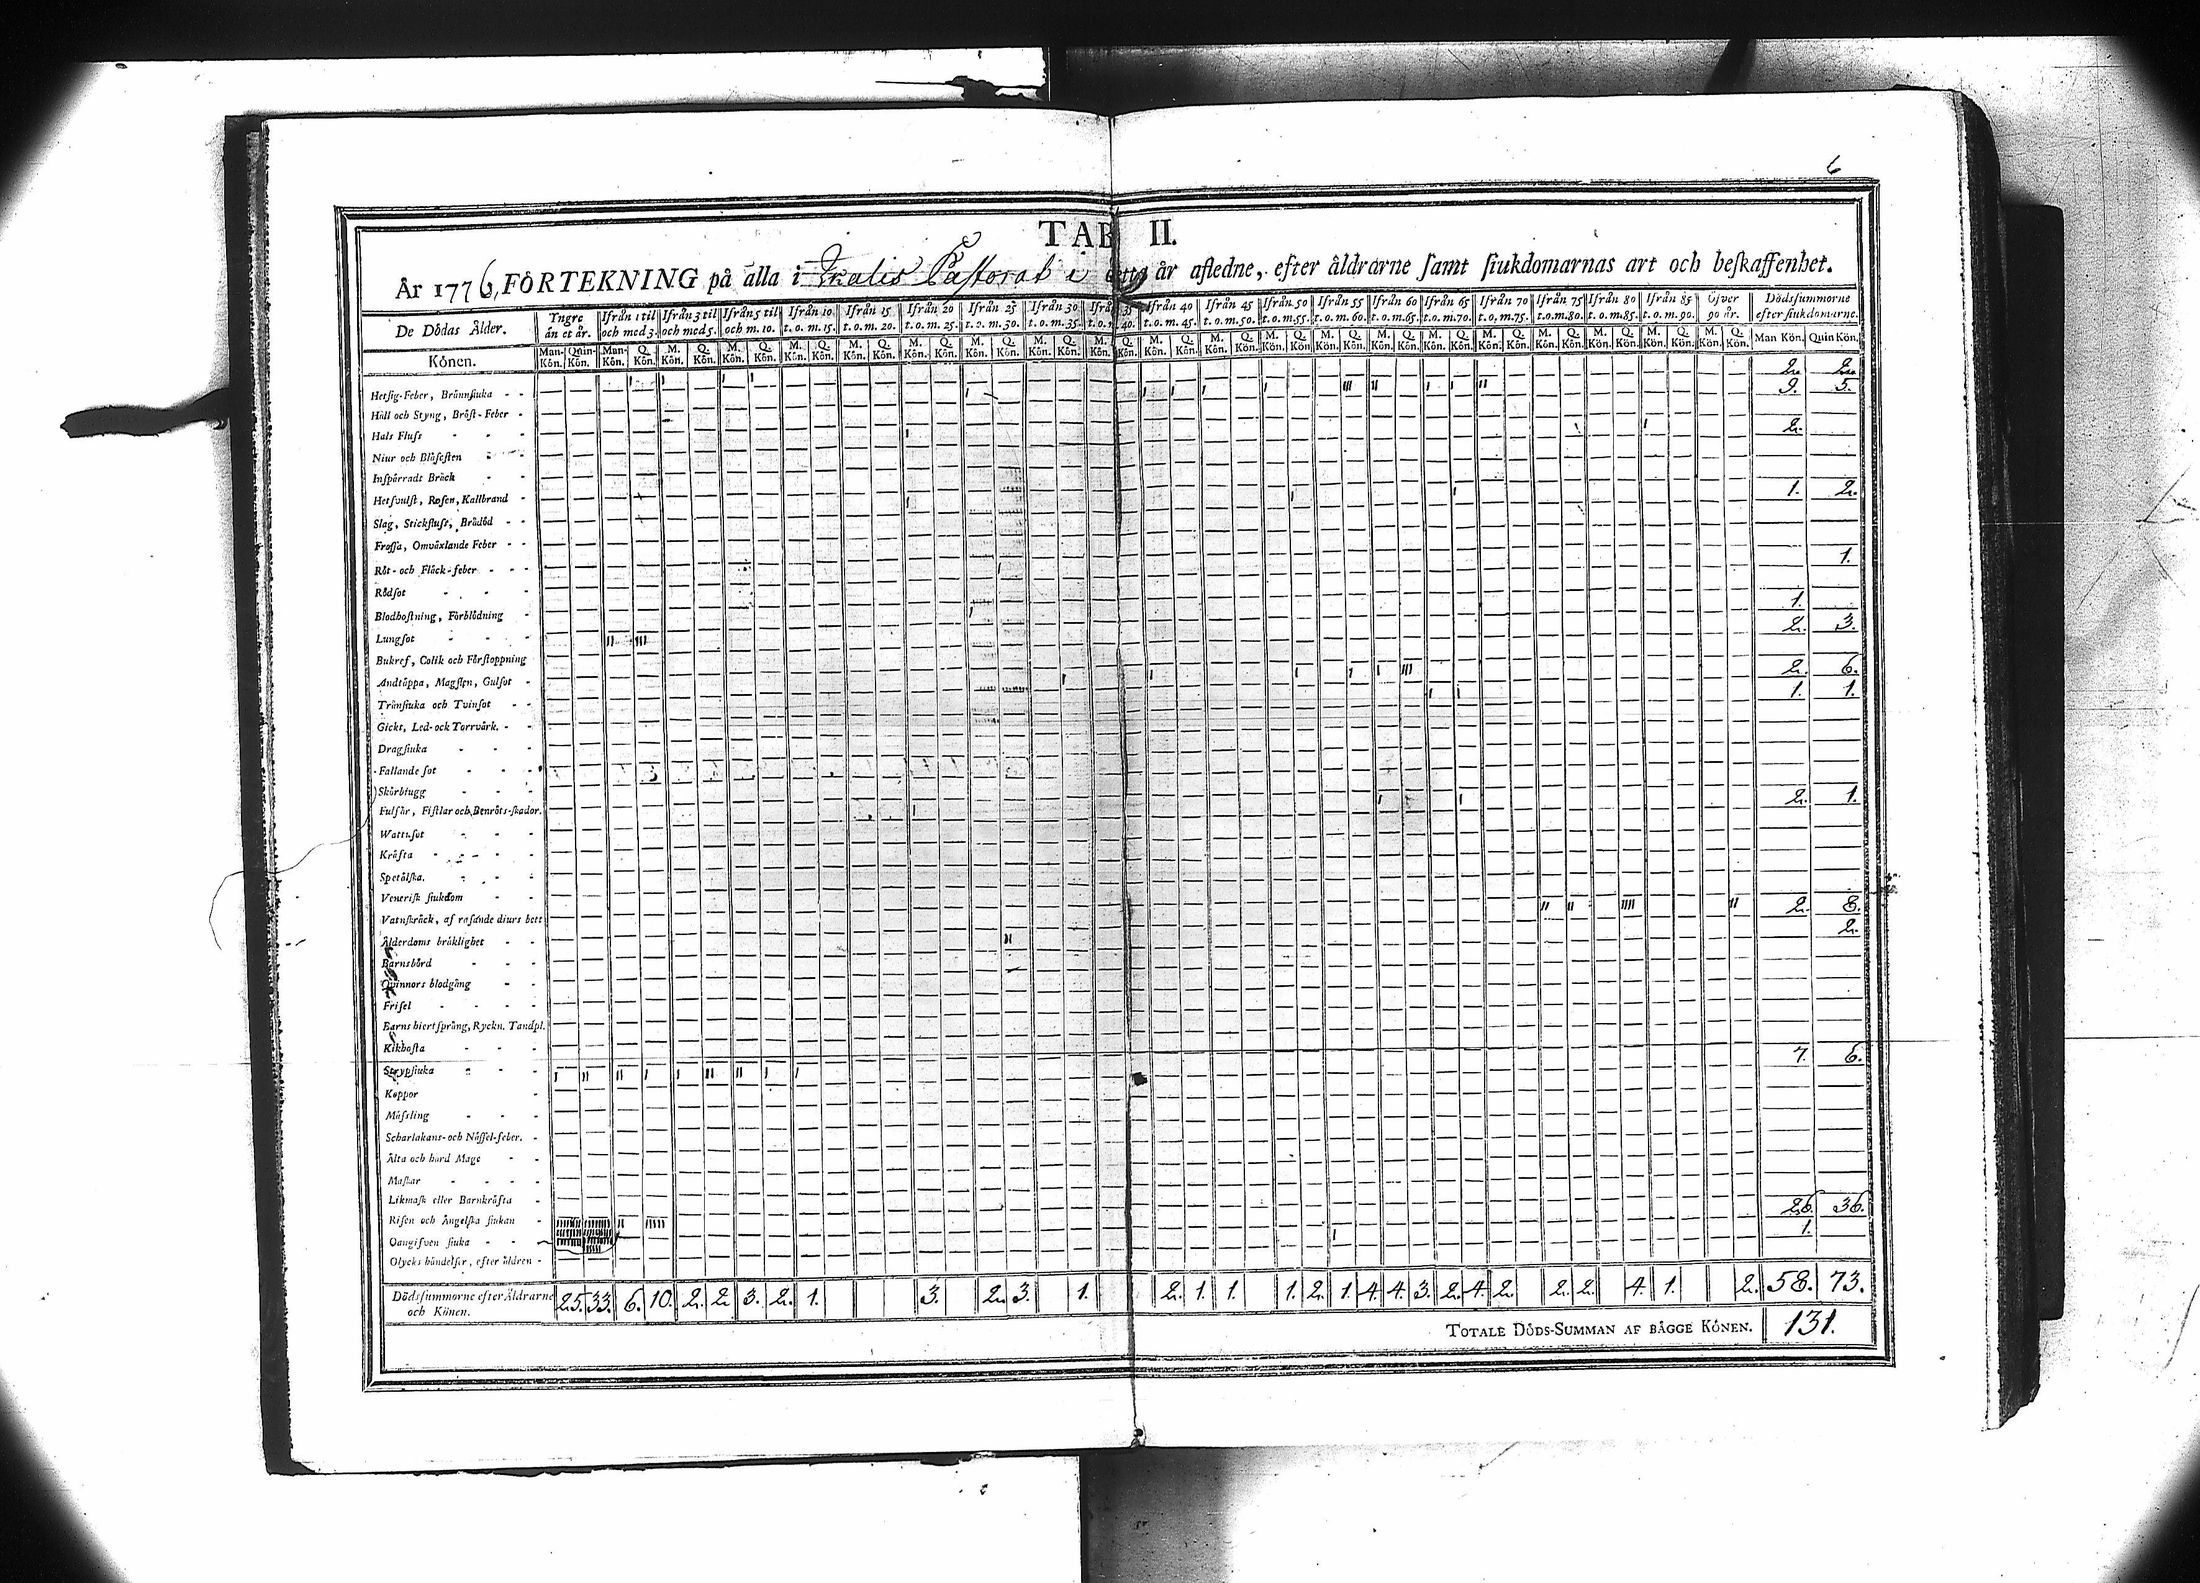 6
TAB II.
År 1776, FÖRTEKNING på alla i Pastorat i detta år afledne, efter åldrarne samt siukdomarnas art och beskaffenhet.
De Dödas Ålder. Yngre än et år. Ifrån 1 til och med 3. Ifrån 3 til och med 5. Ifrån 5 til och m. 10. Ifrån 10 t. o. m. 15. Ifrån 15 t. o. m. 20. Ifrån 20 t. o. m. 25. Ifrån 25 t. o. m. 30. Ifrån 30 t. o. m. 35. Ifrån 35 t. o. m. 40. Ifrån 40 t. o. m. 45. Ifrån 45 t. o. m. 50. Ifrån 50 t. o. m. 55. Ifrån 55 t. o. m. 60. Ifrån 60 t. o. m. 65. Ifrån 65 t. o. m. 70. Ifrån 70 t. o. m. 75. Ifrån 75 t. o. m. 80. Ifrån 80 t. o. m. 85. Ifrån 85 t. o. m. 90. Öfver 90 år. Dödssummorne efter siukdomarne.
Könen. Man-Kön. Quin-Kön. Man-Kön. Q. Kön. M. Kön. Q. Kön. M. Kön. Q. Kön. M. Kön. Q. Kön. M. Kön. Q. Kön. M. Kön. Q. Kön. M. Kön. Q. Kön. M. Kön. Q. Kön. M. Kön. Q. Kön. M. Kön. Q. Kön. M. Kön. Q. Kön. M. Kön. Q. Kön. M. Kön. Q. Kön. M. Kön. Q. Kön. M. Kön. Q. Kön. M. Kön. Q. Kön. M. Kön. Q. Kön. M. Kön. Q. Kön. M. Kön. Q. Kön. M. Kön. Q. Kön. Man Kön. Quin Kön.
2. 2.
Hetsig-Feber, Brännsiuka 9. 5.
Håll och Styng, Bröst-Feber
Hals Fluss 2.
Niur och Blåsesten
Inspärradt Bråck
Hetsvulst, Rosen, Kallbrand 1. 2.
Slag, Stickfluss, Brådöd
Frossa, Omväxlande Feber
Röt- och Fläck-feber 1.
Rödsot
Blodhostning, Förblödning 1.
Lungsot 2. 3.
Bukref, Colik och Förstoppning
Andtäppa, Magsten, Gulsot 2. 6.
Tränsiuka och Tvinsot 1. 1.
Gickt, Led- ock Torrvärk.
Dragsiuka
Fallande sot
Skörbiugg
Fulsår, Fistlar och Benröts-skador. 2. 1.
Wattusot
Kräfta
Spetälska.
Venerisk siukdom
Vatnskräck, af rasande diurs bett 2. 8.
Ålderdoms bräklighet 2.
Barnsbörd
Qvinnors blodgång
Frisel
Barns hiertsprång, Ryckn. Tandpl.
Kikhosta
Strypsiuka 7. 6.
Koppor
Mässling
Scharlakans- och Nässel-feber.
Älta och hård Mage
Maskar
Likmask eller Barnkräfta
Risen och Ängelska siukan 26. 36.
Oangifven siuka 1.
Olycks händelser, efter åldren
Dödssummorne efter Åldrarne 25. 33. 6. 10. 2. 2 3. 2. 1. 3. 2. 3. 1. 2. 1. 1. 1. 2. 1. 4. 4. 3. 2. 4. 2. 2. 2. 4. 1. 2. 58. 73.
och Könen.
TOTALE DÖDS-SUMMAN AF BÄGGE KÖNEN. 131.